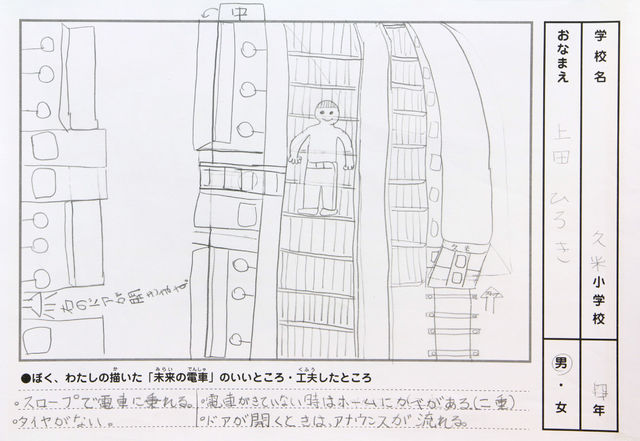 中
久米
●ぼく、わたしの描いた「未来の電車」のいいところ・工夫したところ
・スロープで電車に乗れる。
・タイヤがない。
・電車がきていない時はホームにかべがある。(二重)
・ドアが開くときは、アナウンスが流れる。
学校名
久米小学校
年
おなまえ
上田 ひろき
男・女